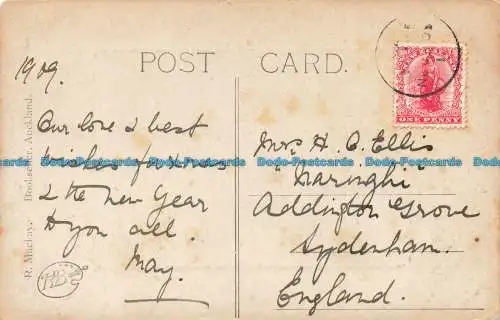 POST CARD.
1909.
Our love & best
wishes for Xmas
& the New Year
to you all.
May.
Mrs H. C. Ellis
"
Addington Grove
Sydenham.
England.
ONE PENNY
R. Mackay, Bookseller, Auckland.
HB
Dodo-Postcards Dodo-Postcards Dodo-Postcards Dodo-Postcards